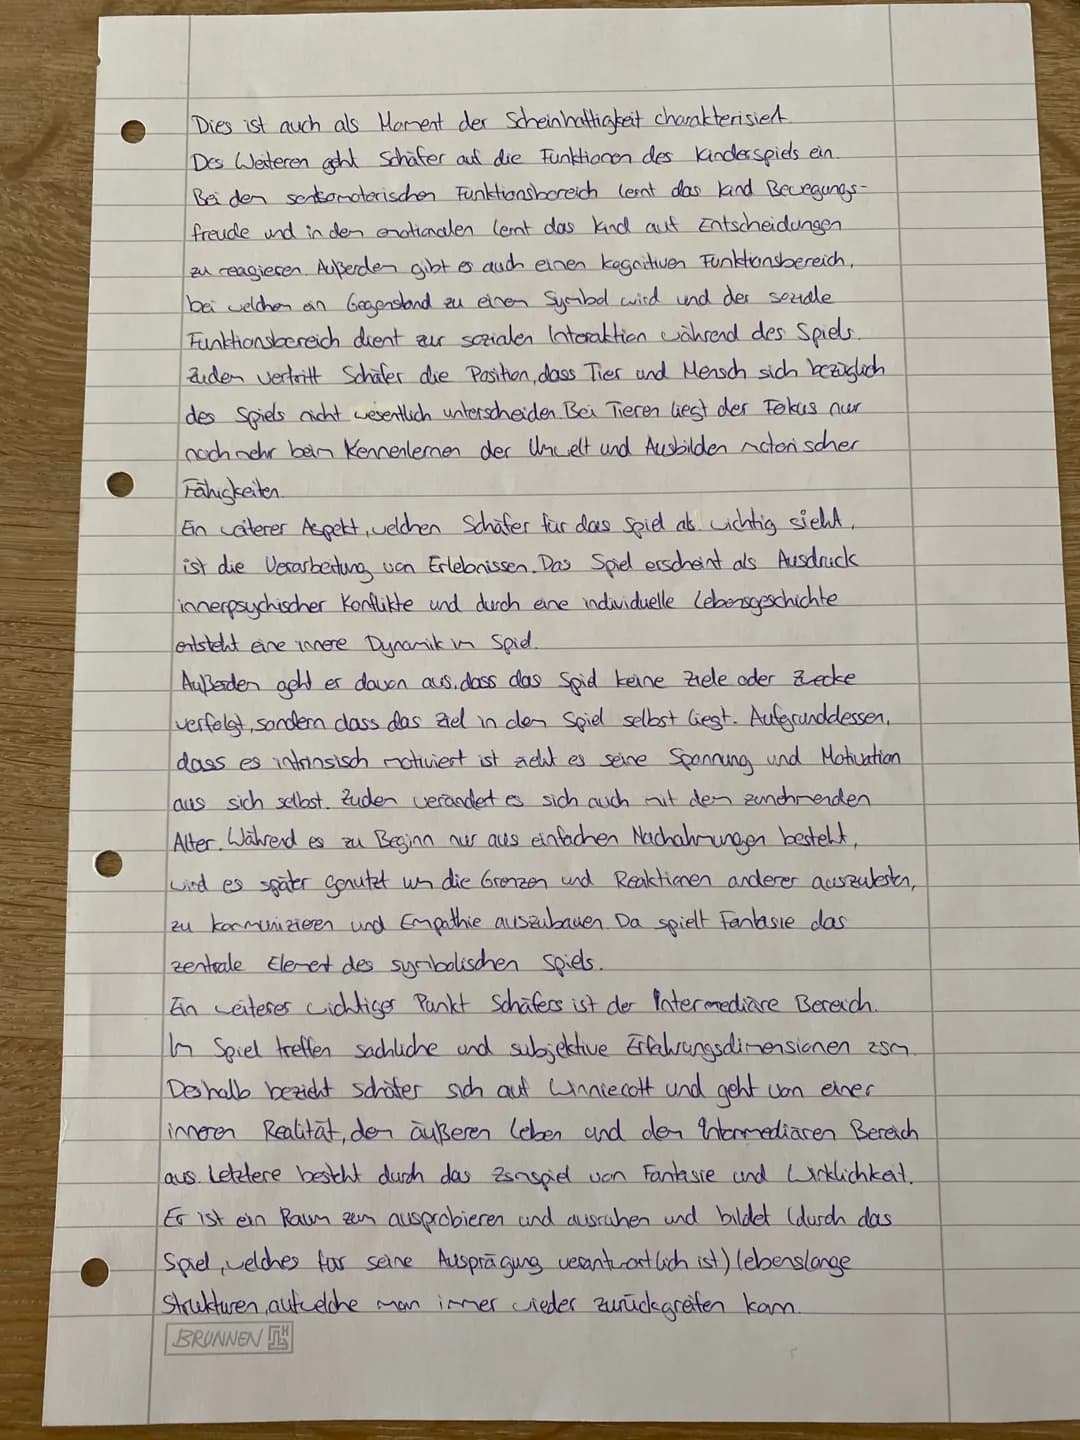 Dies ist auch als Moment der Scheinhaftigkeit charakterisiert.
Des Weiteren geht Schäfer auf die Funktionen des Kinderspiels ein.
Bei dem sensomotorischen Funktionsbereich lernt das Kind Bewegungs-
freude und in dem emotionalen lernt das Kind auf Entscheidungen
zu reagieren. Außerdem gibt es auch einen kognitiven Funktionsbereich,
bei welchem ein Gegenstand zu einem Symbol wird und der soziale
Funktionsbereich dient zur sozialen Interaktion während des Spiels.
Zudem vertritt Schäfer die Position, dass Tier und Mensch sich bezüglich
des Spiels nicht wesentlich unterscheiden. Bei Tieren liegt der Fokus nur
noch mehr beim Kennenlernen der Umwelt und Ausbilden motorischer
Fähigkeiten.
Ein weiterer Aspekt, welchen Schäfer für das Spiel als wichtig sieht,
ist die Verarbeitung von Erlebnissen. Das Spiel erscheint als Ausdruck
innerpsychischer Konflikte und durch eine individuelle Lebensgeschichte
entsteht eine innere Dynamik im Spiel.
Außerdem geht er davon aus, dass das Spiel keine Ziele oder Zwecke
verfolgt, sondern dass das Ziel in dem Spiel selbst liegt. Aufgrunddessen,
dass es intrinsisch motiviert ist zieht es seine Spannung und Motivation
aus sich selbst. Zudem verändert es sich auch mit dem zunehmenden
Alter. Während es zu Beginn nur aus einfachen Nachahmungen besteht,
wird es später genutzt um die Grenzen und Reaktionen anderer auszutesten,
zu kommunizieren und Empathie auszubauen. Da spielt Fantasie das
zentrale Element des symbolischen Spiels.
Ein weiterer wichtiger Punkt Schäfers ist der Intermediäre Bereich.
Im Spiel treffen sachliche und subjektive Erfahrungsdimensionen zsm.
Deshalb bezieht Schäfer sich auf Winniecott und geht von einer
inneren Realität, dem äußeren Leben und dem Intermediären Bereich
aus. Letztere besteht durch das Zsmspiel von Fantasie und Wirklichkeit.
Er ist ein Raum zum ausprobieren und ausruhen und bildet (durch das
Spiel, welches für seine Ausprägung verantwortlich ist) lebenslange
Strukturen, auf welche man immer wieder zurückgreifen kann.
BRUNNEN